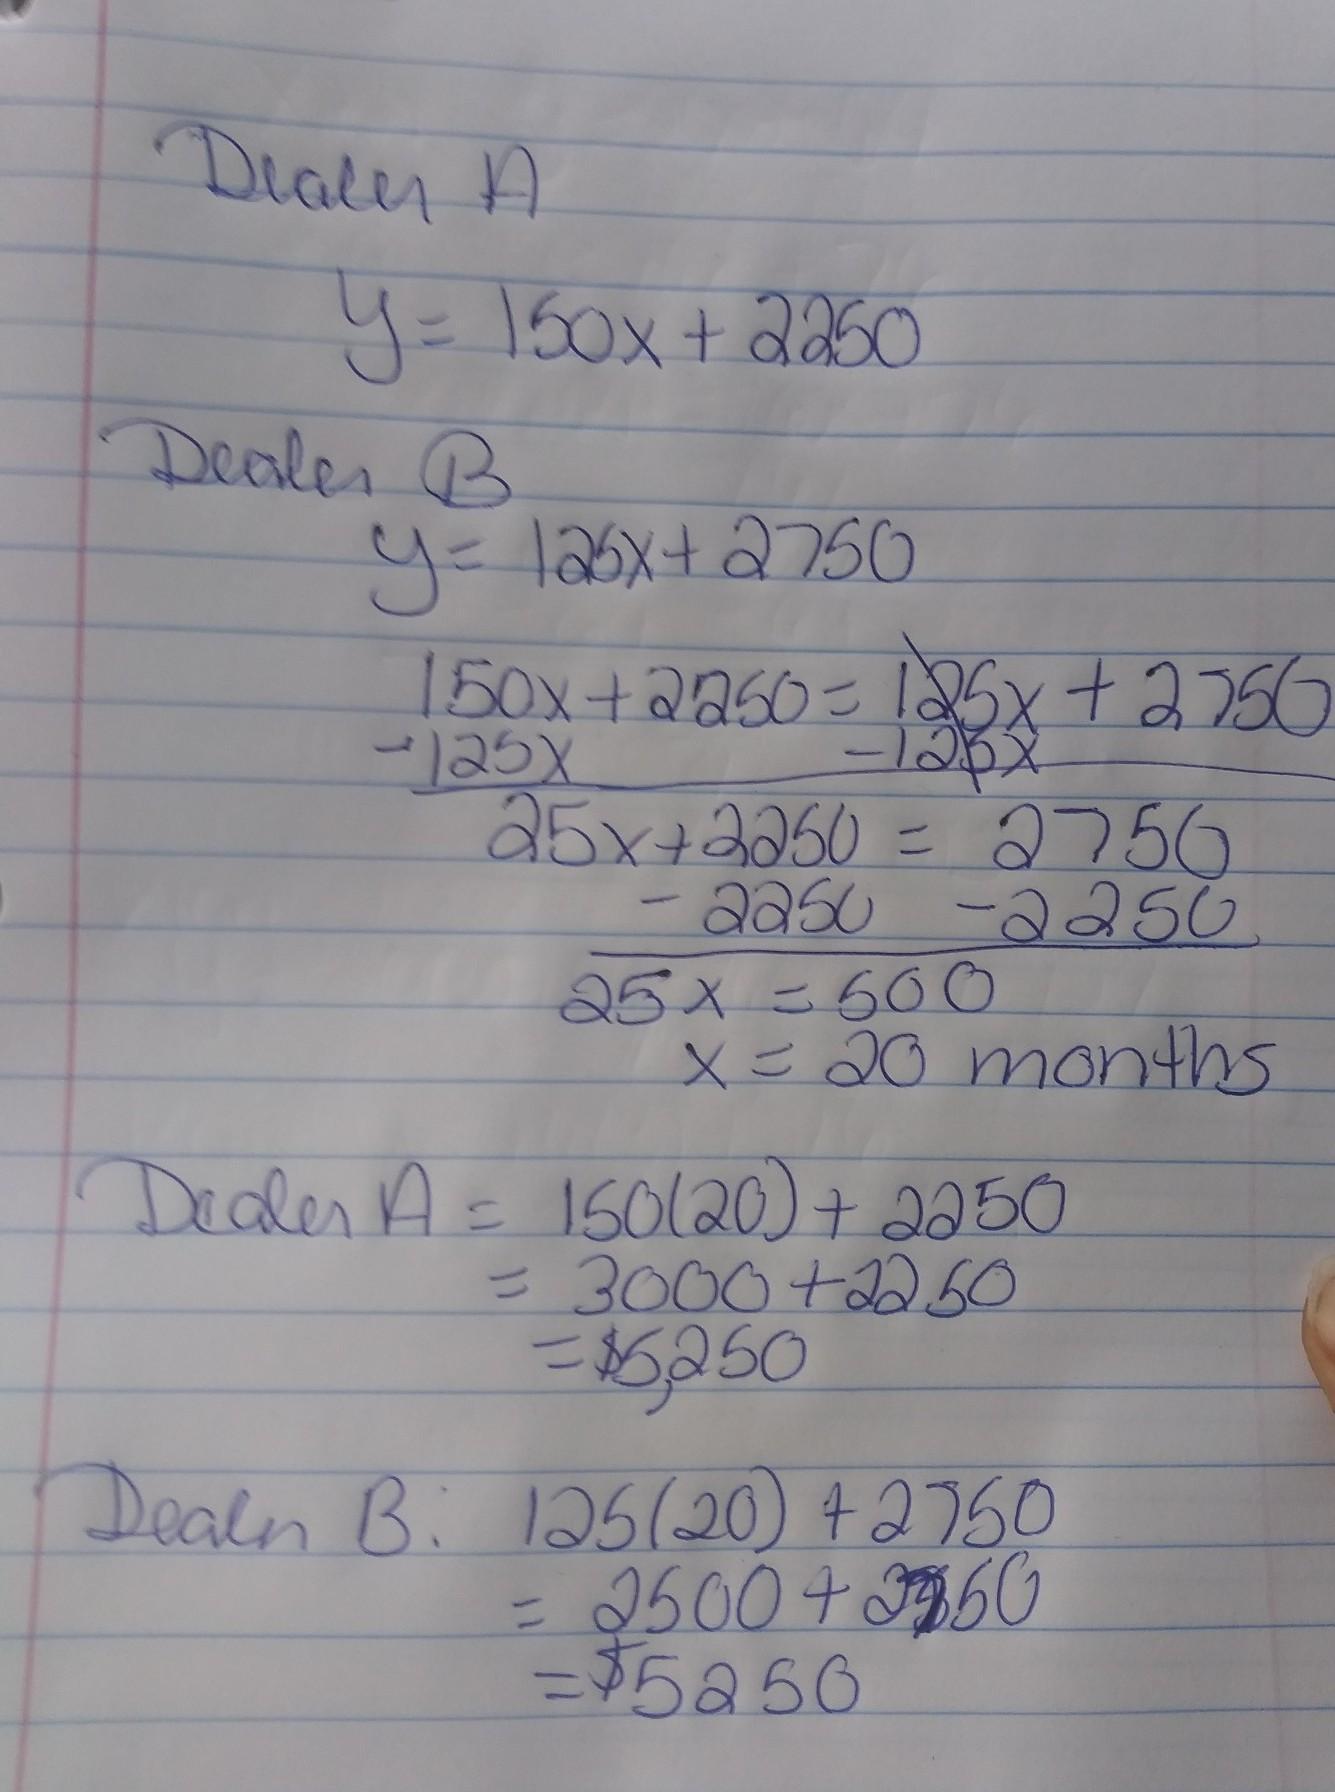 Dealer A
y = 150x + 2250
Dealer B
y = 125x + 2750
150x + 2250 = 125x + 2750
-125x -125x
25x + 2250 = 2750
- 2250 - 2250
25x = 500
x = 20 months
Dealer A = 150(20) + 2250
= 3000 + 2250
= $5,250
Dealer B: 125(20) + 2750
= 2500 + 2750
= $5250